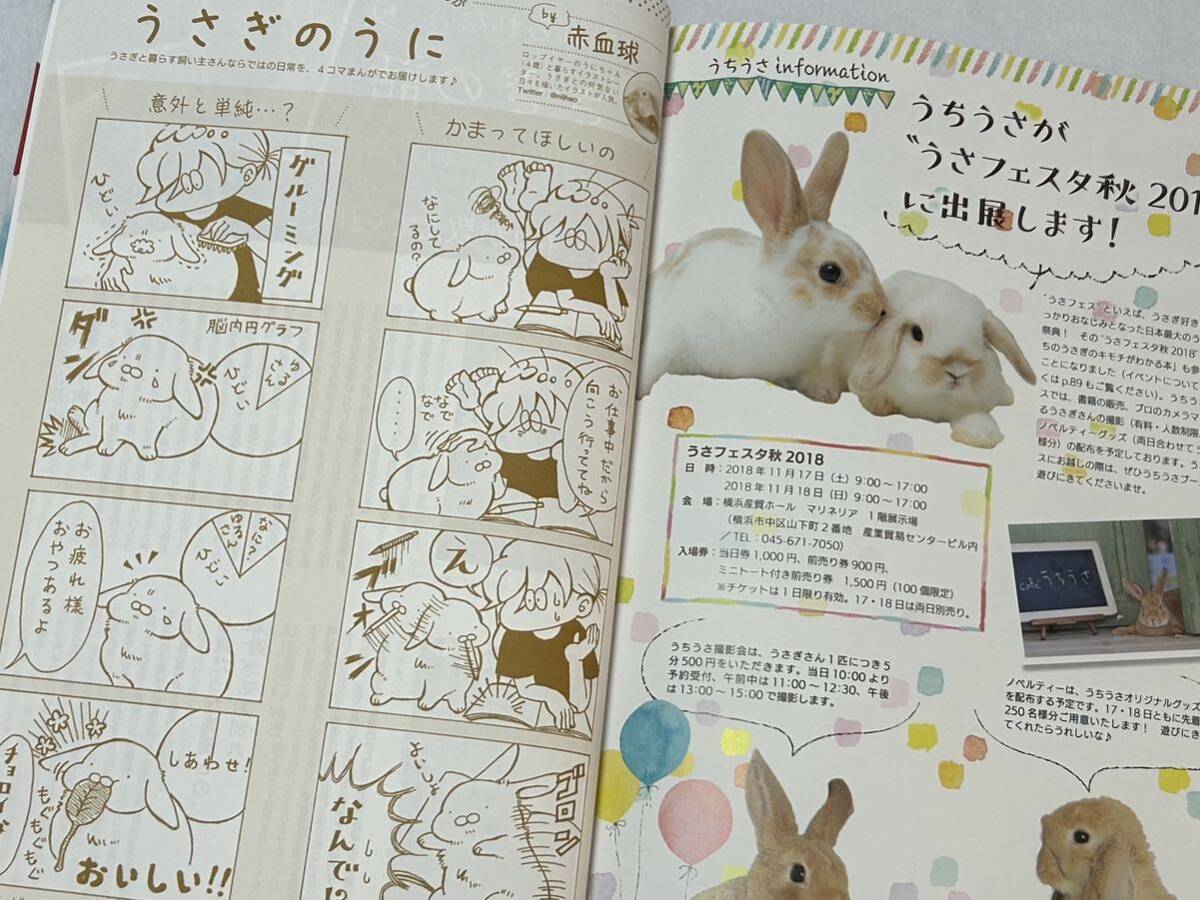 うさぎのうに
by 赤血球
うさぎと暮らす飼い主さんならではの日常を、4コマまんがでお届けします♪
ロップイヤーのうにちゃん
（4歳）と暮らすイラストレー
ター。うさぎとの何気ない
日々を描いたイラストが人気。
Twitter：@niiihao_
意外と単純…？
グルーミング
ひどい
ダン
脳内円グラフ
ゆるさん
ひどい
なに？
ゆるさん
ひどい
お疲れ様
おやつあるよ
しあわせ！
チョロいな
もぐもぐもぐ
おいしい!!
かまってほしいの
なにしてるの？
お仕事中だから
向こう行っててね
なでなで
‥‥‥
え
よいしょ
ゴロン
なんで!?
うちうさ information
うちうさが
“うさフェスタ秋 201
に出展します！
“うさフェス”といえば、うさぎ好き
っかりおなじみとなった日本最大のう
祭典！　その“うさフェスタ秋 2018
ちのうさぎのキモチがわかる本」も参
ことになりました（イベントについて
くは p.89 もご覧ください）。うちうさ
スでは、書籍の販売、プロのカメラマ
るうさぎさんの撮影（有料・人数制限
ノベルティーグッズ（両日合わせて5
様分）の配布を予定しております。フ
スにお越しの際は、ぜひうちうさブー
遊びにきてくださいませ。
うさフェスタ秋 2018
日　時：2018 年 11 月 17 日（土）9:00～17:00
2018 年 11 月 18 日（日）9:00～17:00
会　場：横浜産貿ホール　マリネリア　1 階展示場
（横浜市中区山下町 2 番地　産業貿易センタービル内
／TEL：045-671-7050）
入場券：当日券 1,000 円、前売り券 900 円、
ミニトート付き前売り券　1,500 円（100 個限定）
※チケットは 1 日限り有効。17・18 日は両日別売り。
café うちうさ
うちうさ撮影会は、うさぎさん 1 匹につき 5
分 500 円をいただきます。当日 10:00 より
予約受付、午前中は 11:00～12:30、午後
は 13:00～15:00 で撮影します。
ノベルティーは、うちうさオリジナルグッズ
を配布する予定です。17・18 日ともに先着
250 名様分ご用意いたします！　遊びにき
てくれたらうれしいな♪